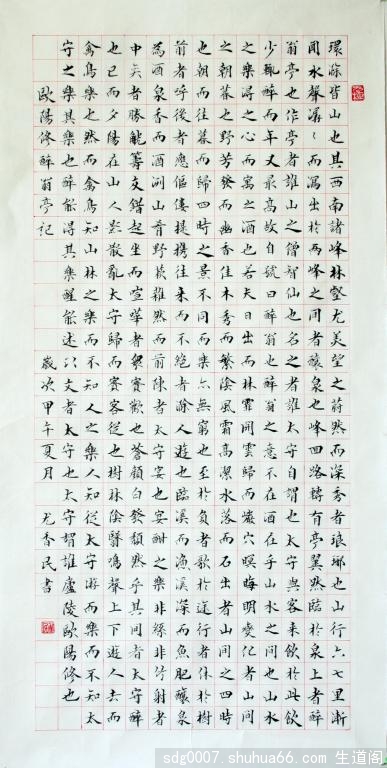 環滁皆山也其西南諸峰林壑尤美望之蔚然而深秀者琅琊也山行六七里漸
聞水聲潺〻而瀉出於兩峰之間者釀泉也峰回路轉有亭翼然臨於泉上者醉
翁亭也作亭者誰山之僧智仙也名之者誰太守自謂也太守與客來飲於此飲
少輒醉而年又最高故自號曰醉翁也醉翁之意不在酒在乎山水之間也山水
之樂得之心而寓之酒也若夫日出而林霏開雲歸而巖穴暝晦明變化者山間
之朝暮也野芳發而幽香佳木秀而繁陰風霜高潔水落而石出者山間之四時
也朝而往暮而歸四時之景不同而樂亦無窮也至於負者歌於途行者休於樹
前者呼後者應傴僂提攜往來而不絕者滁人遊也臨溪而漁溪深而魚肥釀泉
為酒泉香而酒洌山肴野蔌雜然而前陳者太守宴也宴酣之樂非絲非竹射者
中奕者勝觥籌交錯起坐而喧嘩者眾賓歡也蒼顏白髮頹然乎其間者太守醉
也已而夕陽在山人影散亂太守歸而賓客從也樹林陰翳鳴聲上下遊人去而
禽鳥樂也然而禽鳥知山林之樂而不知人之樂人知從太守游而樂而不知太
守之樂其樂也醉能同其樂醒能述以文者太守也太守謂誰廬陵歐陽修也
歐陽修醉翁亭記 歲次甲午夏月 尤香民書
sdg0007.shuhua66.com 生道阁